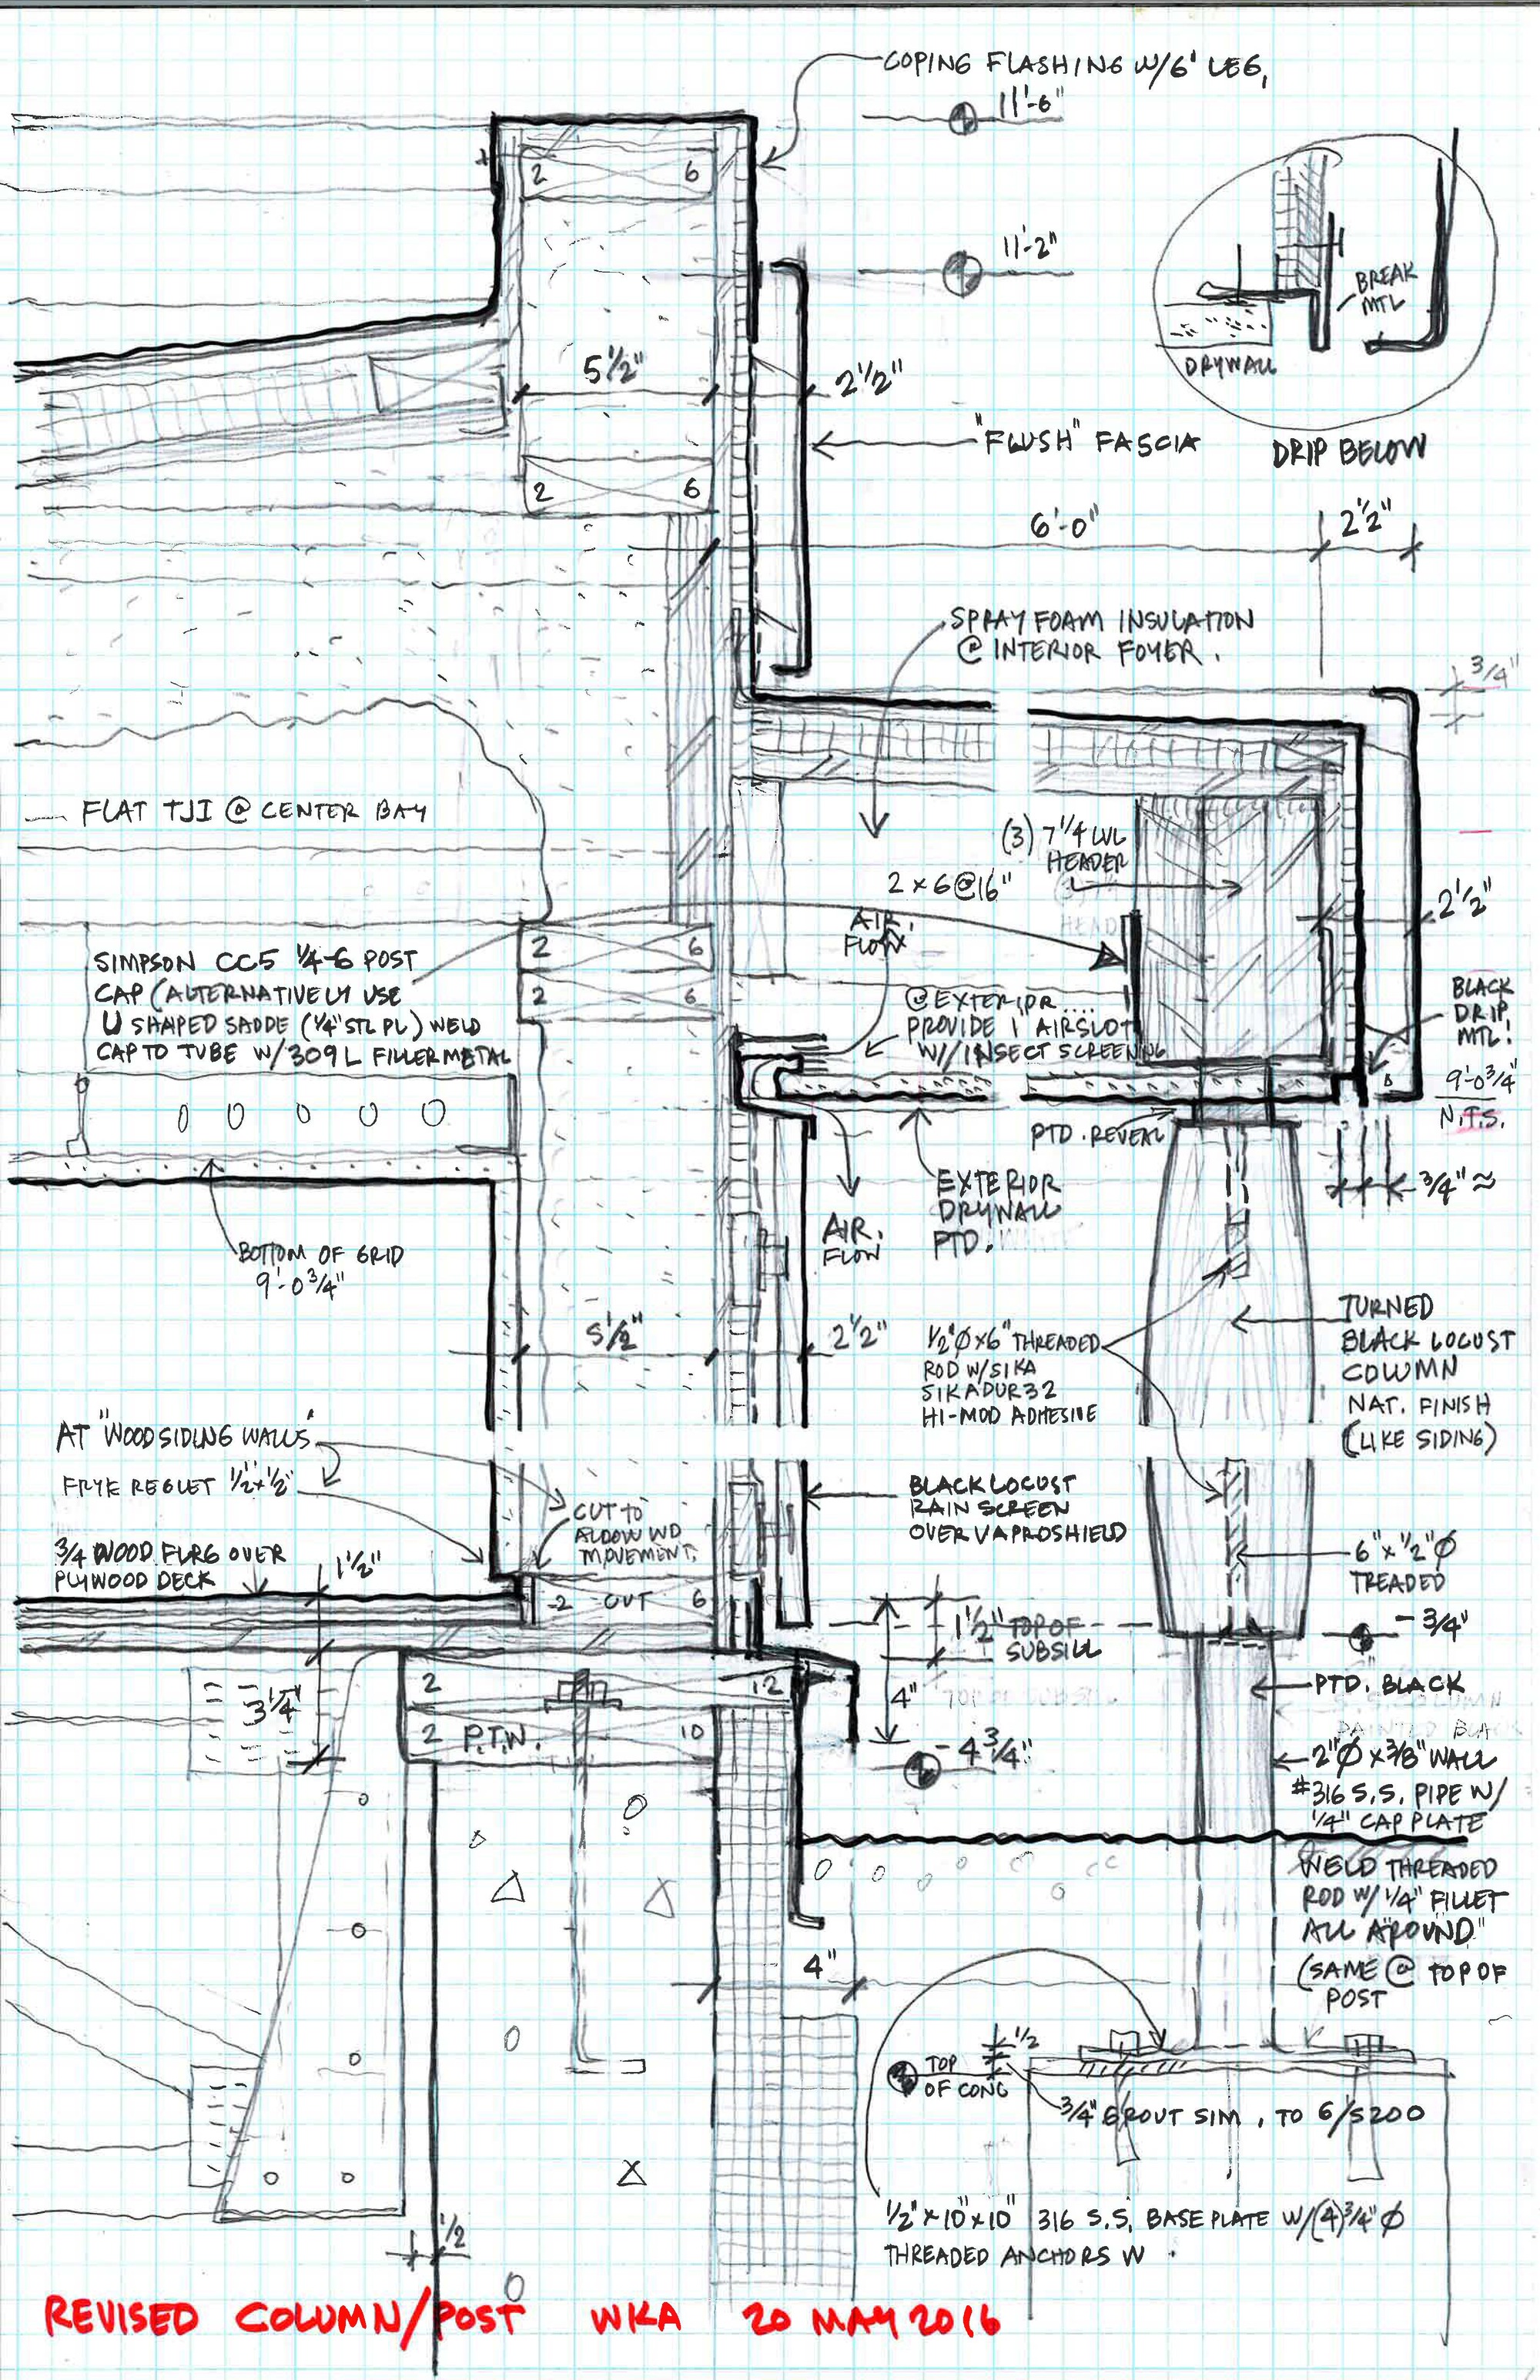 COPING FLASHING W/6" LEG,
11'-6"
2 6
11'-2"
BREAK
MTL
DRYWALL
DRIP BELOW
5 1/2"
2 1/2"
"FLUSH" FASCIA
2 6
6'-0"
2 1/2"
SPRAY FOAM INSULATION
@ INTERIOR FOYER.
3/4"
FLAT TJI @ CENTER BAY
(3) 7 1/4 LVL
HEADER
2 x 6 @ 16"
2 1/2"
AIR.
FLOW
2 6
2 6
SIMPSON CC5 1/4-6 POST
CAP (ALTERNATIVELY USE
U SHAPED SADDE (1/4" STL PL) WELD
CAP TO TUBE W/ 309 L FILLER METAL
@ EXTERIOR....
PROVIDE 1 AIRSLOT
W/ INSECT SCREENING
BLACK
DRIP,
MTL!
9'-0 3/4"
N.T.S.
PTD. REVEAL
3/4" ≈
EXTERIOR
DRYWALL
PTD.
AIR.
FLOW
BOTTOM OF GRID
9'-0 3/4"
5 1/2"
2 1/2"
1/2"Ø x 6" THREADED
ROD W/ SIKA
SIKADUR 32
HI-MOD ADHESIVE
TURNED
BLACK LOCUST
COLUMN
NAT. FINISH
(LIKE SIDING)
AT "WOOD SIDING WALLS"
FRYE REGLET 1/2 x 1/2"
CUT TO
ALLOW WD
MOVEMENT.
BLACK LOCUST
RAIN SCREEN
OVER VAPROSHIELD
3/4 WOOD FLRG OVER
PLYWOOD DECK
1 1/2"
2 CUT 6
6" x 1/2" Ø
TREADED
1 1/2" TOP OF
SUBSILL
- 3/4"
PTD. BLACK
2 12
4"
3 1/4"
2 P.T.W. 10
- 4 3/4"
2"Ø x 3/8" WALL
#316 S.S. PIPE W/
1/4" CAP PLATE
WELD THREADED
ROD W/ 1/4" FILLET
ALL AROUND"
(SAME @ TOP OF
POST
4"
1/2
TOP
OF CONC
3/4" GROUT SIM. TO 6/S200
1/2" x 10" x 10" 316 S.S. BASE PLATE W/(4) 3/4" Ø
THREADED ANCHORS W.
1/2
REVISED COLUMN/POST WKA 20 MAY 2016